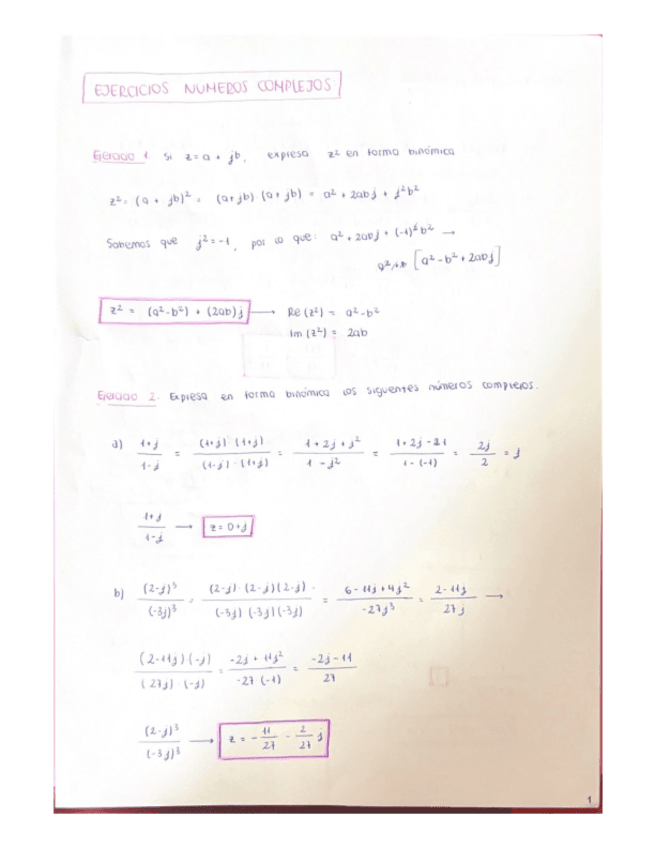 EJERCICIOS NUMEROS COMPLEJOS
Ejercicio 1. Si z = a + jb, expresa z² en forma binómica
z² = (a + jb)² = (a+jb) (a+jb) = a² + 2abj + j²b²
Sabemos que j² = -1, por lo que: a² + 2abj + (-1)² b² →
[a² - b² + 2abj]
z² = (a²-b²) + (2ab)j → Re (z²) = a²-b²
Im (z²) = 2ab
Ejercicio 2. Expresa en forma binómica los siguientes números complejos.
a) 1+j / 1-j = (1+j)·(1+j) / (1-j)·(1+j) = 1 + 2j + j² / 1 - j² = 1 + 2j - 1 / 1 - (-1) = 2j / 2 = j
1+j / 1-j → z = 0+j
b) (2-j)³ / (-3j)³ = (2-j)·(2-j)(2-j) / (-3j) (-3j)(-3j) = 6 - 11j + 4j² / -27j³ = 2 - 11j / 27j →
(2-11j)(-j) / (27j)·(-j) = -2j + 11j² / -27 (-1) = -2j - 11 / 27
(2-j)³ / (-3j)³ → z = - 11/27 - 2/27 j
1